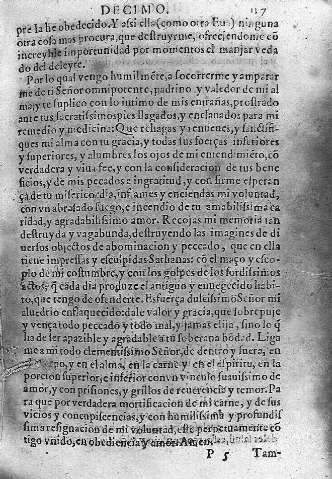 DECIMO. 117
pre la he obedecido. Y assi ella (como otra Eua) ninguna
otra cosa mas procura, que destruyrme, ofreciendome cō
increyble importunidad por momentos el manjar veda
do del deleyte.
Por lo qual vengo humilmēte, a socorrerme y amparar
me de ti Señor omnipotente, padrino y valedor de mi al
ma, y te suplico con lo intimo de mis entrañas, prostrado
ante tus sacratissimos pies llagados, y enclauados para mi
remedio y medicina: Que rehagas y renueues, y sanctifi-
ques mi alma con tu gracia, y todas sus fuerças inferiores
y superiores, y alumbres los ojos de mi entendimiēto, cō
verdadera y viua fee, y con la consideracion de tus bene
ficios, y de mis peccados e ingratitud, y con firme esperan
ça de tu misericordia, inflames y enciendas mi voluntad,
con vn abrasado fuego, e incendio de tu amabilissima ca
ridad, y agradabilissimo amor. Recojas mi memoria tan
destruyda y vagabunda, destruyendo las imagines de di
uersos objectos de abominacion y peccado, que en ella
tiene impressas y esculpidas Sathanas: cō el maço y esco-
plo de mi costumbre, y con los golpes de los sordidissimos
actos, q̄ cada dia produze el antiguo y enuegecido habi-
to, que tengo de ofenderte. Esfuerça dulcissimo Señor mi
aluedrio enflaquecido: dale valor y gracia, que sobrepuje
y vença todo peccado y todo mal, y jamas elija, sino lo q̄
ha de ser apazible y agradable a tu soberana bōdad. Liga
me a mi todo clementissimo Señor, de dentro y fuera, en
cuerpo, y en el alma, en la carne y en el espiritu, en la
porcion superior, e inferior con vn vinculo suauissimo de
amor, y con prisiones, y grillos de reuerencia y temor. Pa
ra que por verdadera mortificacion de mi carne, y de sus
vicios y concupiscencias, y con humilissima y profundis
sima resignacion de mi voluntad, este perpetuamente cō
tigo vnido, en obediencia y amor. Amen.
P 5 Tam-